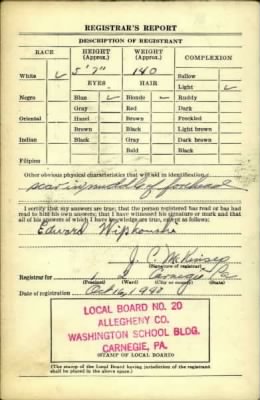 REGISTRAR'S REPORT
DESCRIPTION OF REGISTRANT
RACE HEIGHT (Approx.) WEIGHT (Approx.) COMPLEXION
5' 7" 140
White ✓ EYES HAIR Sallow
Light ✓
Negro Blue ✓ Blonde ✓ Ruddy
Gray Red Dark
Oriental Hazel Brown Freckled
Brown Black Light brown
Indian Black Gray Dark brown
Bald Black
Filipino
Other obvious physical characteristics that will aid in identification
scar in middle of forehead
I certify that my answers are true; that the person registered has read or has had
read to him his own answers; that I have witnessed his signature or mark and that
all of his answers of which I have knowledge are true, except as follows:
Edward
J. C. McKinsey
(Signature of registrar)
Registrar for Carnegie Pa
(Precinct) (Ward) (City or county) (State)
Date of registration Oct 16, 1940
LOCAL BOARD NO. 20
ALLEGHENY CO.
WASHINGTON SCHOOL BLDG.
CARNEGIE, PA.
(STAMP OF LOCAL BOARD)
(The stamp of the Local Board having jurisdiction of the registrant
shall be placed in the above space.)